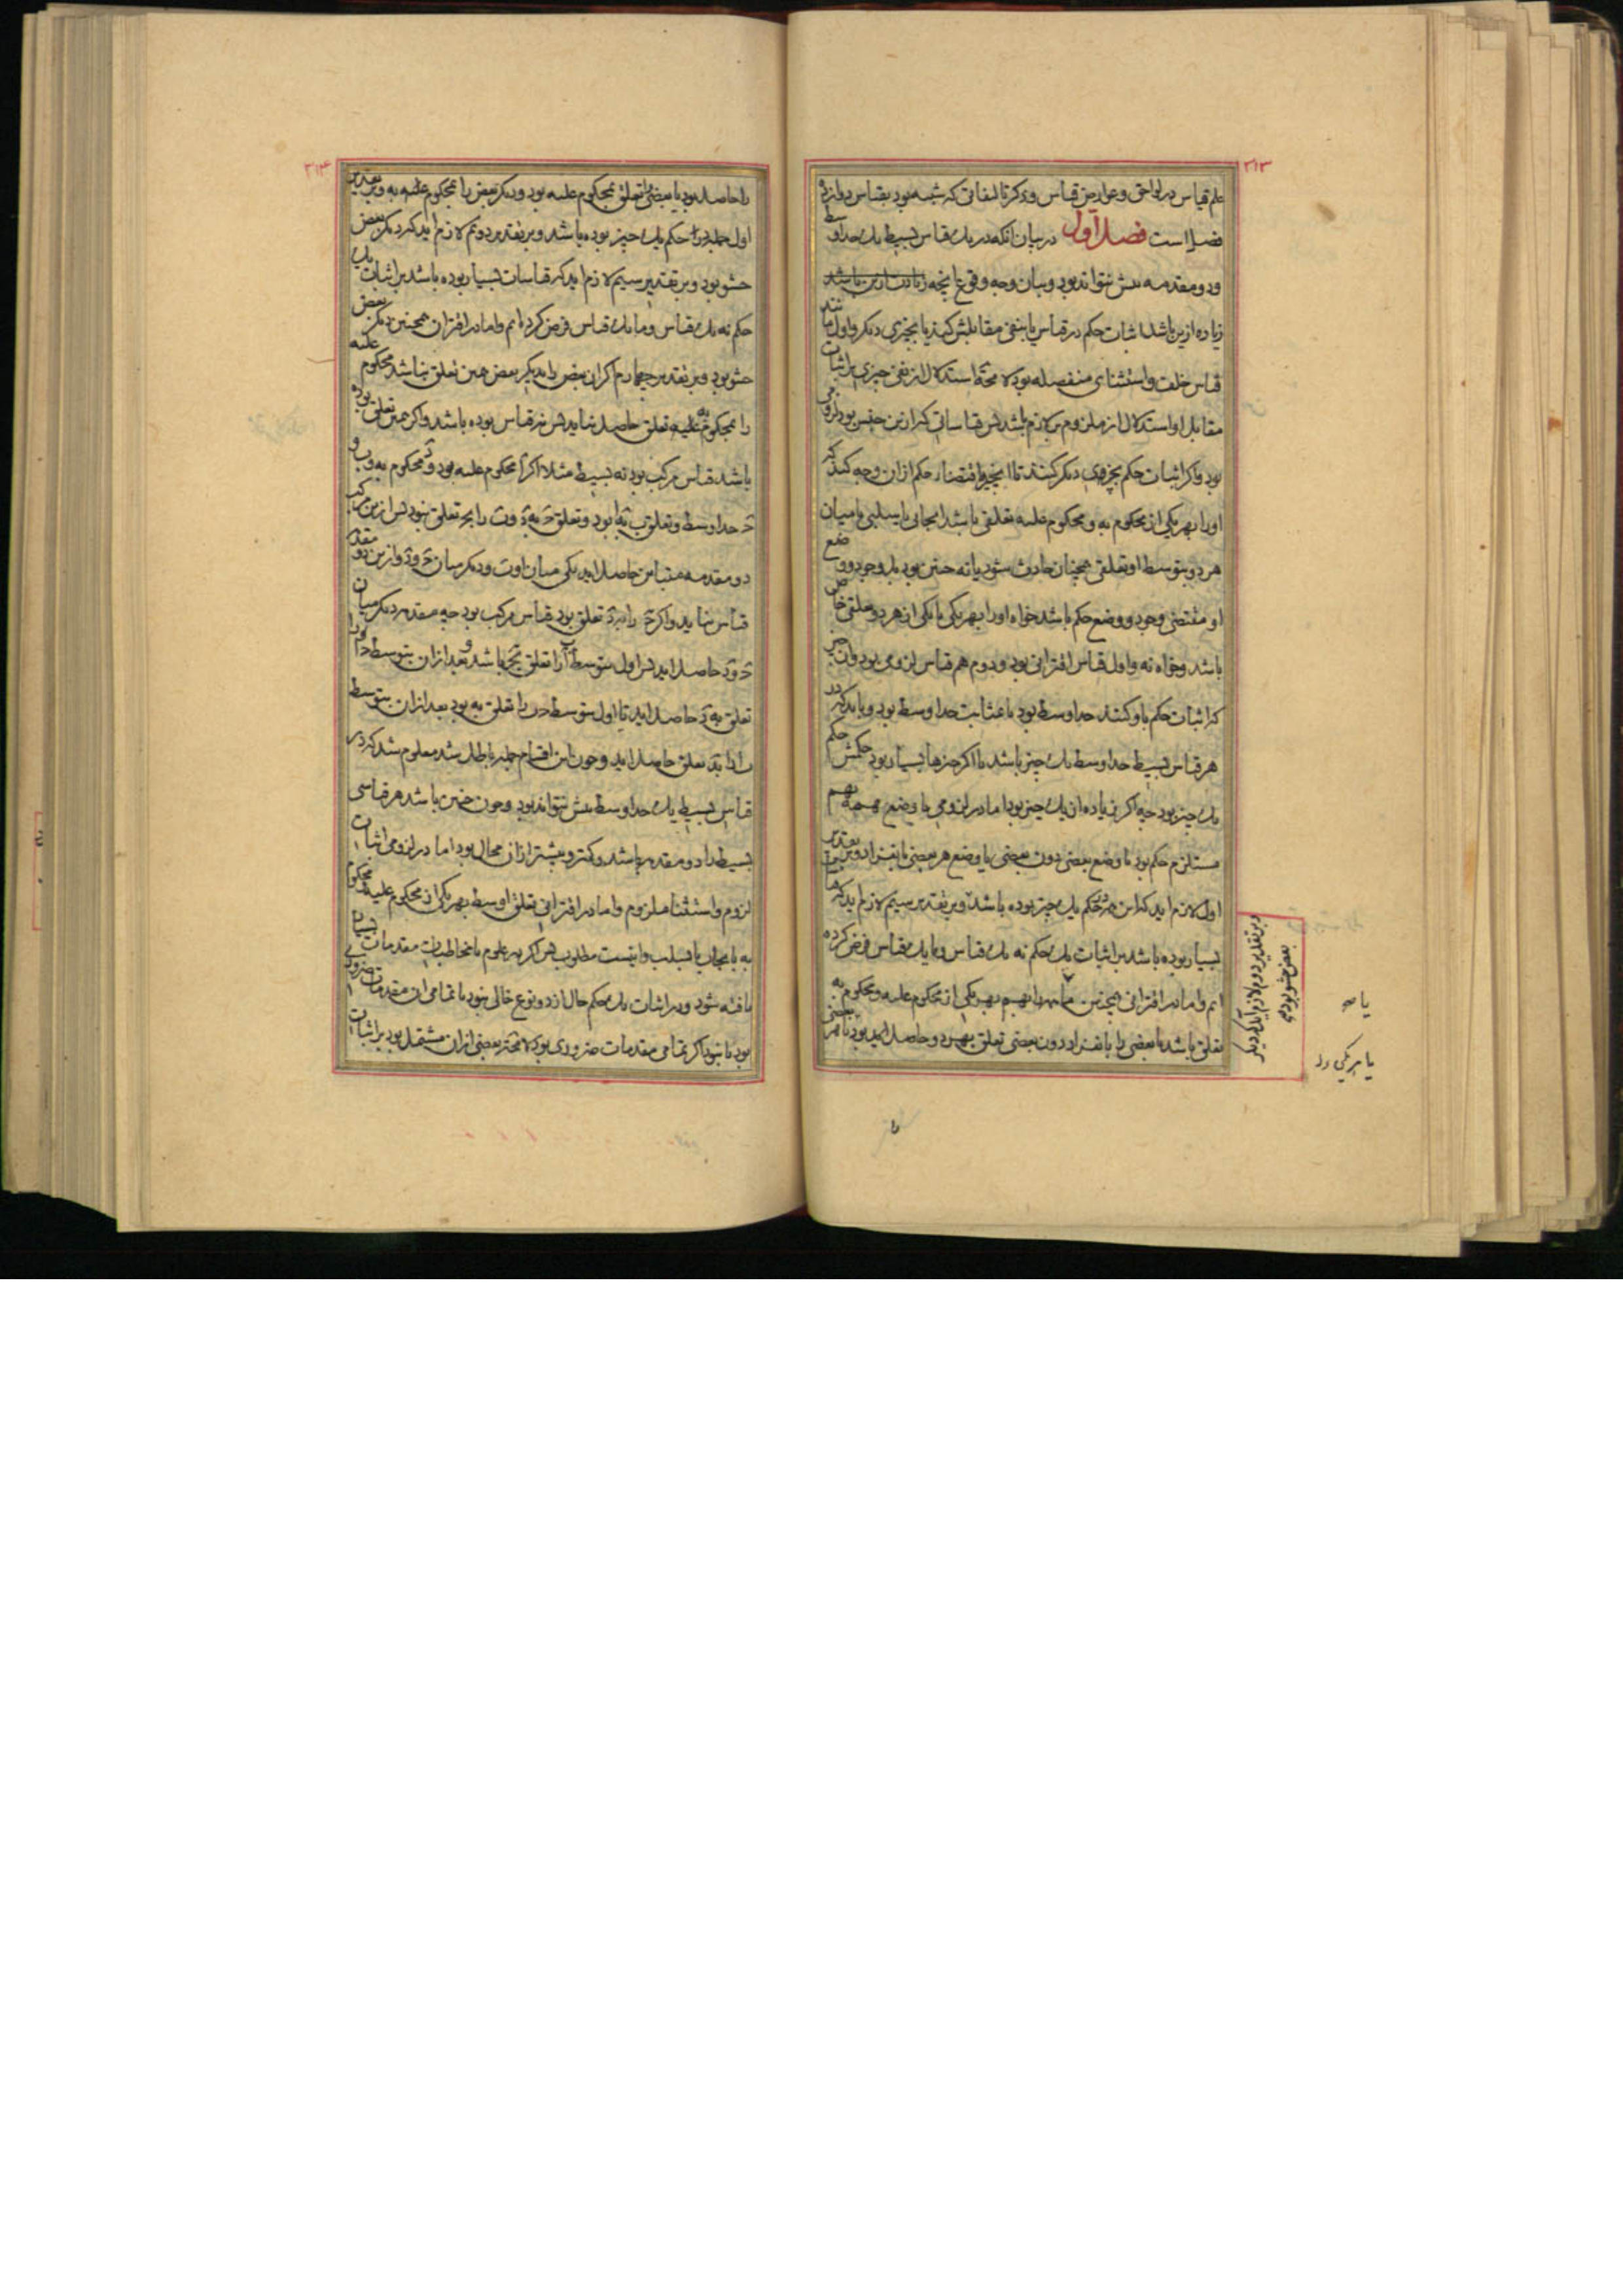 ۳۱۳
علم قیاس در لواحق و عوارض قیاس و ذکر تالیفاتی که شبیه بود بقیاس دوازده
فصل است فصل اول در بیان آنکه در یک قیاس بسیط یک حد اوسط
و دو مقدمه بیش نتواند بود و بیان وجه وقوع آنچه زیادت ازین باشد
زیاده ازین باشد اثبات حکم در قیاس یا بنفی مقابلش کنند یا بچیزی دیگر و اول
قیاس خلف و استثنای منفصله بود لا محة استدلال از نفی چیزی بر اثبات
مقابل او استدلال از ملزوم بر لازم باشد پس قیاساتی که ازین جنس بود لزومی
بود و اگر اثبات حکم بچیزی دیگر کنند تا آنچیز اقتضاء حکم از آن وجه کند که
او را بهر یکی از محکوم به و محکوم علیه تعلقی باشد ایجابی یا سلبی یا میان
هر دو بتوسط او تعلقی همچنان حادث شود یا نه چنین بود بل وجود و وضع
او مقتضی وجود و وضع حکم باشد خواه او را بهر یکی یا یکی از هر دو تعلقی خاص
باشد و خواه نه و اول قیاس اقترانی بود و دوم هم قیاس لزومی بود و آن چیز
که اثبات حکم باو کنند حد اوسط بود یا بمثابت حد اوسط بود و باید که در
هر قیاس بسیط حد اوسط یک چیز باشد یا اگر چیزها بسیار بود حکمش حکم
یک چیز بود چه اگر زیاده از یک چیز بود اما در لزومی یا وضع همه بهم
مستلزم حکم بود یا وضع بعضی دون بعضی یا وضع هر بعضی بانفراد و بر تقدیر
اول لازم اید که این همه در حکم یک چیز بوده باشد و بر تقدیر سیم لازم اید که قیاسات
بسیار بوده باشد بر اثبات یک حکم نه یک قیاس و ما یک قیاس فرض کرده
ایم و اما در اقترانی همچنین یا همه را بهم بهر یکی از محکوم علیه و محکوم به
تعلق باشد یا بعضی را بانفراد دون بعضی تعلق بهر دو حاصل اید بود یا هر بعضی
بر تقدیر دوم لازم آید که دیگر
بعض حشو بود و
یا صه
یا هر یکی را
۳۱۴
را حاصل بود یا بعضی را تعلق بمحکوم علیه بود و دیگر بعض را بمحکوم علیه به و بر تقدیر
اول جمله در حکم یک چیز بوده باشد و بر تقدیر دوم لازم اید که دیگر بعض
حشو بود و بر تقدیر سیم لازم اید که قیاسات بسیار بوده باشد بر اثبات یک
حکم نه یک قیاس و ما یک قیاس فرض کرده ایم و اما در اقتران همچنین دیگر بعض
حشو بود و بر تقدیر چهارم اگر آن بعض را بدیگر بعض هین تعلق نباشد محکوم علیه
را بمحکوم به تعلق حاصل نیاید پس نه قیاس بوده باشد و اگر هین تعلق بوده
باشد قیاس مرکب بود نه بسیط مثلا اگر آ محکوم علیه بود و د محکوم به و ب و
ج حد اوسط و تعلق ب به آ بود و تعلق ج به د و ب را بج تعلق نبود پس ازین مرکب
دو مقدمه متباین حاصل اید یکی میان ا و ب و دیگر میان ج و د و ازین دو مقدمه
قیاس نیاید و اگر ج را به ب تعلق بود قیاس مرکب بود چه مقدمه دیگر میان
ج و ب حاصل اید پس اول بتوسط ب آ را تعلق بج باشد و بعد از آن بتوسط ج ا را
تعلق به د حاصل اید یا اول بتوسط ج ب را تعلق به بود بعد از آن بتوسط
ب ا را به د تعلق حاصل اید و چون این اقسام جمله باطل شد معلوم شد که در
قیاس بسیط یک حد اوسط بیش نتواند بود و چون چنین باشد هر قیاسی
بسیط را دو مقدمه باشد و کمتر و بیشتر از آن محال بود اما در لزومی اثبات
لزوم و استثناء ملزوم و اما در اقترانی تعلق اوسط بهر یکی از محکوم علیه و محکوم
به بایجاب یا بسلب و اینست مطلوب پس اگر در علوم یا مخاطبات مقدمات بسیار
یافته شود و بر اثبات یک حکم حال از دو نوع خالی نبود یا تمامی آن مقدمات ضروری
بود یا نبود اگر تمامی مقدمات ضروری بود لا محة بعضی از آن مشتمل بود بر اثبات